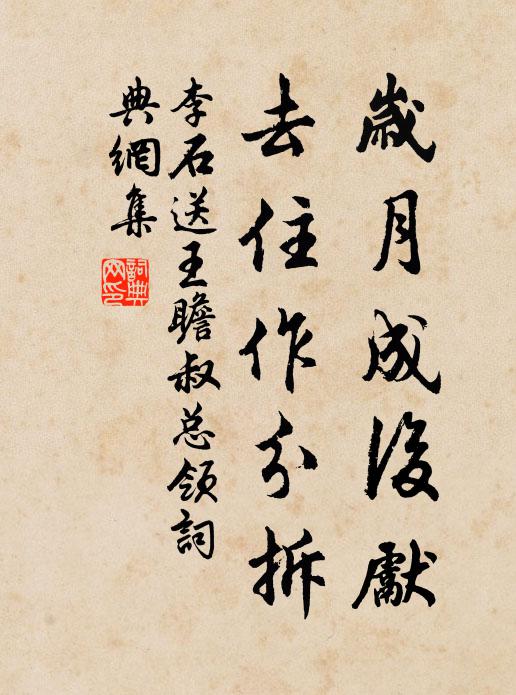 歲月成後獻
去住作分拆
李石送王瞻叔总領詞
典網集
詞典網印